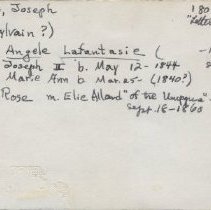 , Joseph 180
lvain ?)
Angele Lafantasie ( -1
Joseph II b. May 12-1844
Marie Ann b Mar. 25- (1840?)
Rose m. Elie Allard "of the Umpqua"
Sept. 18-1865